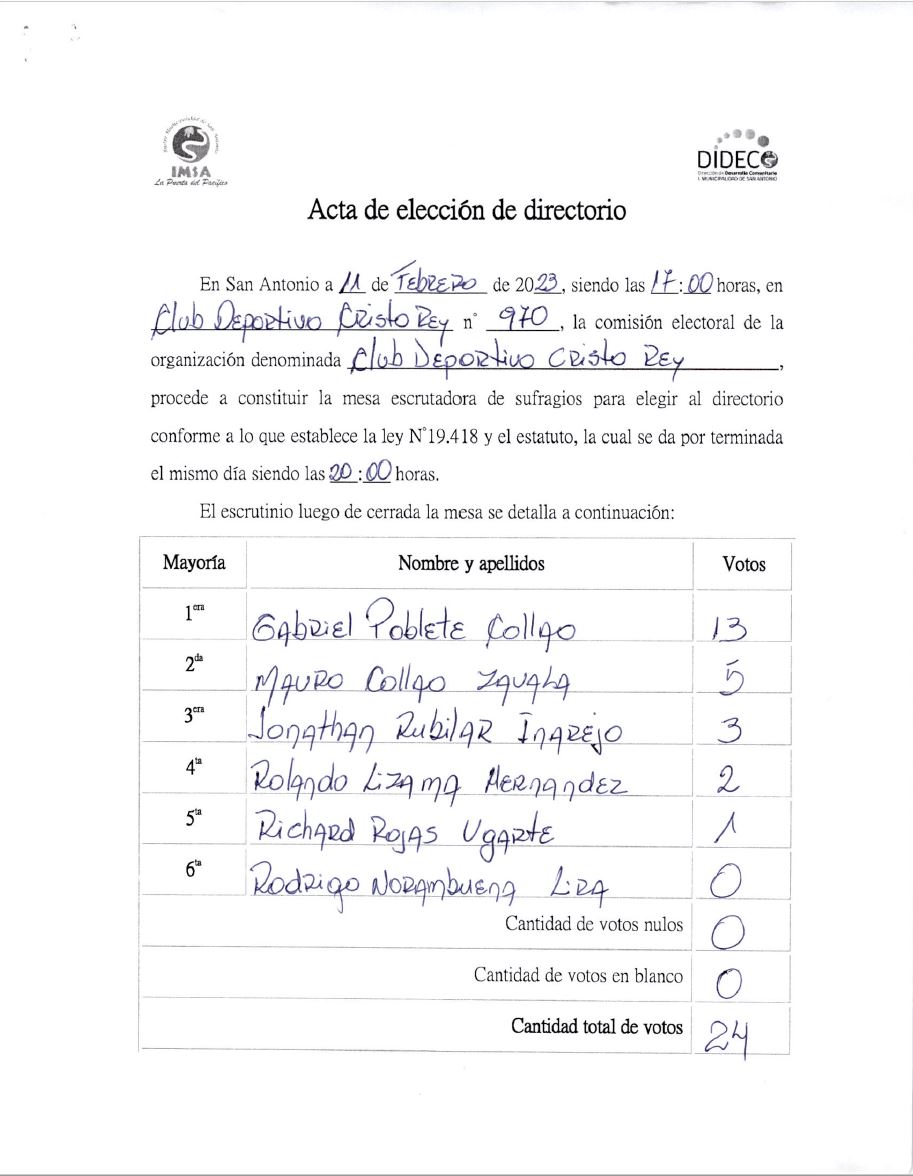 IMSA
La Puerta del Pacífico
DIDECO
Dirección de Desarrollo Comunitario
I. MUNICIPALIDAD DE SAN ANTONIO
Acta de elección de directorio
En San Antonio a 11 de Febrero de 2023, siendo las 17:00 horas, en
Club Deportivo Cristo Rey n° 970, la comisión electoral de la
organización denominada Club Deportivo Cristo Rey,
procede a constituir la mesa escrutadora de sufragios para elegir al directorio
conforme a lo que establece la ley N°19.418 y el estatuto, la cual se da por terminada
el mismo día siendo las 20:00 horas.
El escrutinio luego de cerrada la mesa se detalla a continuación:
Mayoría Nombre y apellidos Votos
1era Gabriel Poblete Collao 13
2da Mauro Collao Zavala 5
3era Jonathan Rubilar Inarejo 3
4ta Rolando Lizama Hernandez 2
5ta Richard Rojas Ugarte 1
6ta Rodrigo Norambuena Lira 0
Cantidad de votos nulos 0
Cantidad de votos en blanco 0
Cantidad total de votos 24